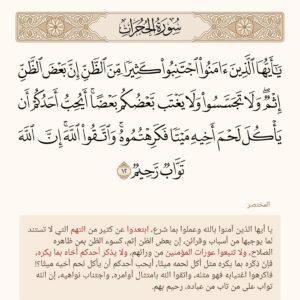 سُورَةُ الحُجُرَاتِ
يَـٰٓأَيُّهَا ٱلَّذِينَ ءَامَنُوا۟ ٱجْتَنِبُوا۟ كَثِيرًا مِّنَ ٱلظَّنِّ إِنَّ بَعْضَ ٱلظَّنِّ
إِثْمٌ ۖ وَلَا تَجَسَّسُوا۟ وَلَا يَغْتَب بَّعْضُكُم بَعْضًا ۚ أَيُحِبُّ أَحَدُكُمْ أَن
يَأْكُلَ لَحْمَ أَخِيهِ مَيْتًا فَكَرِهْتُمُوهُ ۚ وَٱتَّقُوا۟ ٱللَّهَ ۚ إِنَّ ٱللَّهَ
تَوَّابٌ رَّحِيمٌ ١٢
المختصر
يا أيها الذين آمنوا بالله وعملوا بما شرع، ابتعدوا عن كثير من التهم التي لا تستند
لما يوجبها من أسباب وقرائن، إن بعض الظن إثم، كسوء الظن بمن ظاهره
الصلاح، ولا تتبعوا عورات المؤمنين من ورائهم، ولا يذكر أحدكم أخاه بما يكره،
فإن ذكره بما يكره مثل أكل لحمه ميتًا، أيحب أحدكم أن يأكل لحم أخيه ميتًا؟!
فاكرهوا اغتيابه فهو مثله، واتقوا الله بامتثال أوامره، واجتناب نواهيه، إن الله
تواب على من تاب من عباده، رحيم بهم.